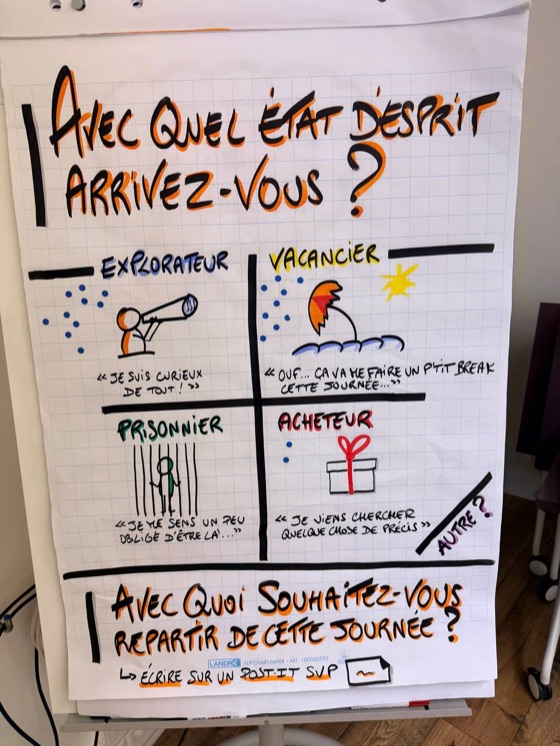 AVEC QUEL ÉTAT D'ESPRIT
ARRIVEZ-VOUS ?
EXPLORATEUR
« JE SUIS CURIEUX
DE TOUT ! »
VACANCIER
« OUF... ÇA VA ME FAIRE UN P'TIT BREAK
CETTE JOURNÉE... »
PRISONNIER
« JE ME SENS UN PEU
OBLIGÉ D'ÊTRE LÀ... »
ACHETEUR
« JE VIENS CHERCHER
QUELQUE CHOSE DE PRÉCIS »
AUTRE ?
AVEC QUOI SOUHAITEZ-VOUS
REPARTIR DE CETTE JOURNÉE ?
LANDRÉ
↳ ÉCRIRE SUR UN POST-IT SVP